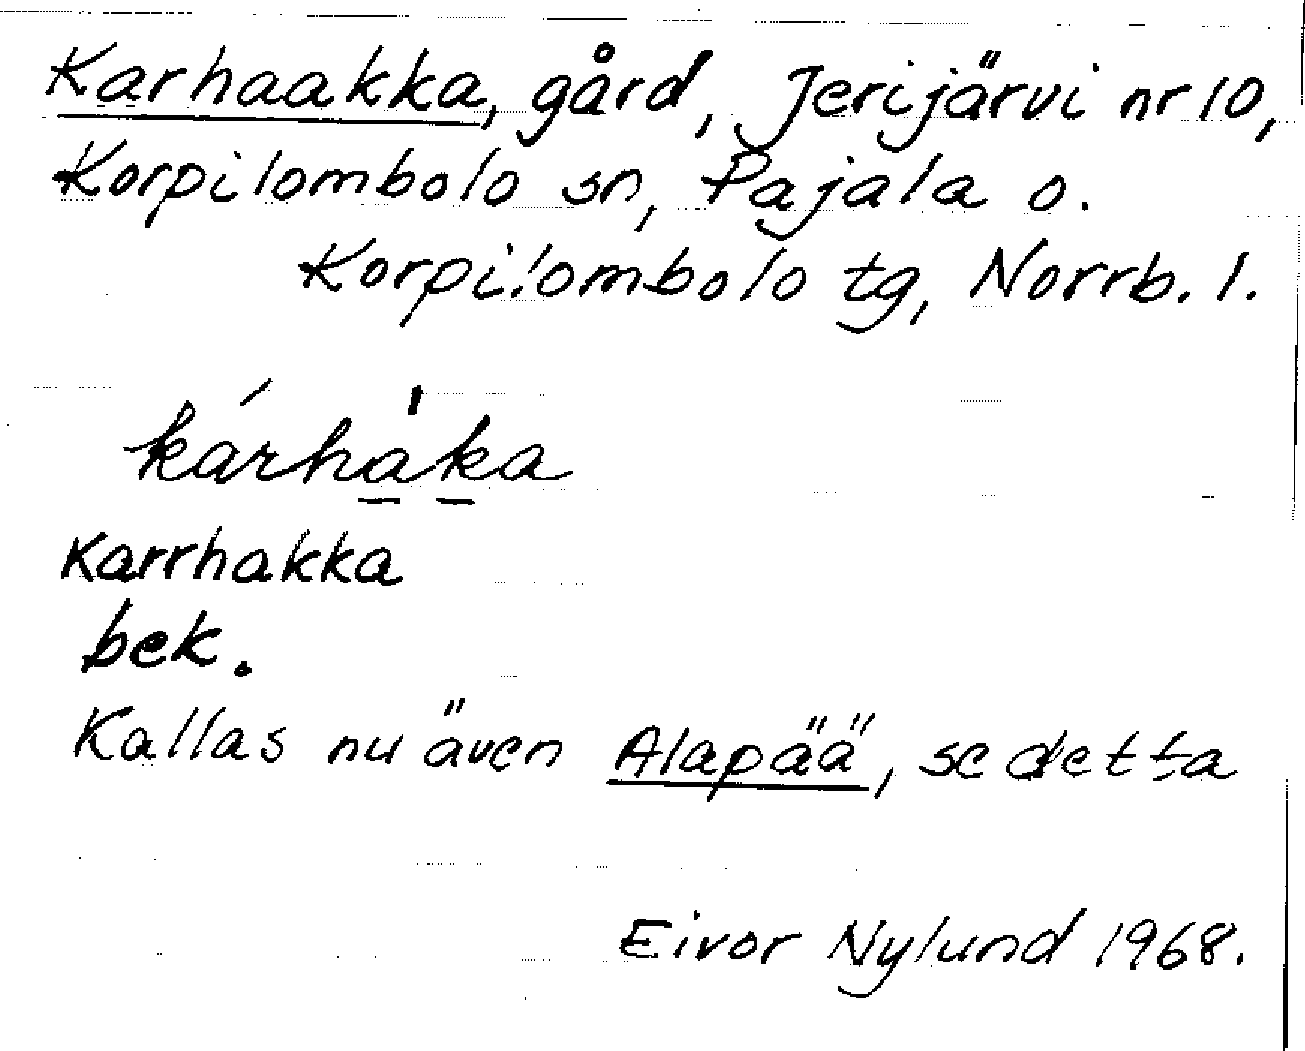 Karhaakka, gård, Jerijärvi nr 10,
Korpilombolo sn, Pajala o.
Korpilombolo tg, Norrb. l.
kárhà̱ḵa
Karrhakka
bek.
Kallas nu även Alapää, se detta
Eivor Nylund 1968.